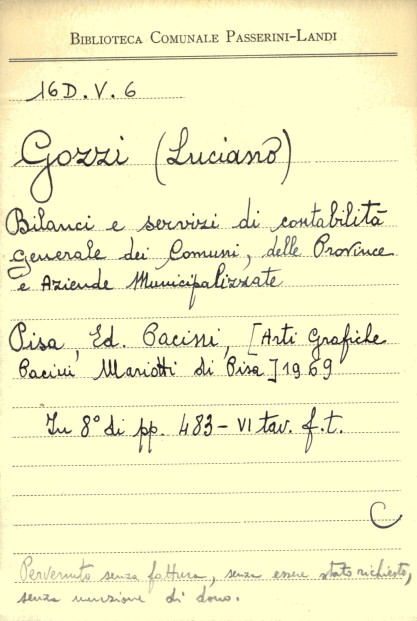 BIBLIOTECA COMUNALE PASSERINI-LANDI
16D.V.6
Gozzi (Luciano)
Bilanci e servizi di contabilità
generale dei Comuni, delle Province
e Aziende Municipalizzate
Pisa, Ed. Pacini, [Arti Grafiche
Pacini Mariotti di Pisa] 1969
In 8° di pp. 483 - VI tav. f.t.
C
Pervenuto senza fattura, senza essere stato richiesto,
senza menzione di dono.